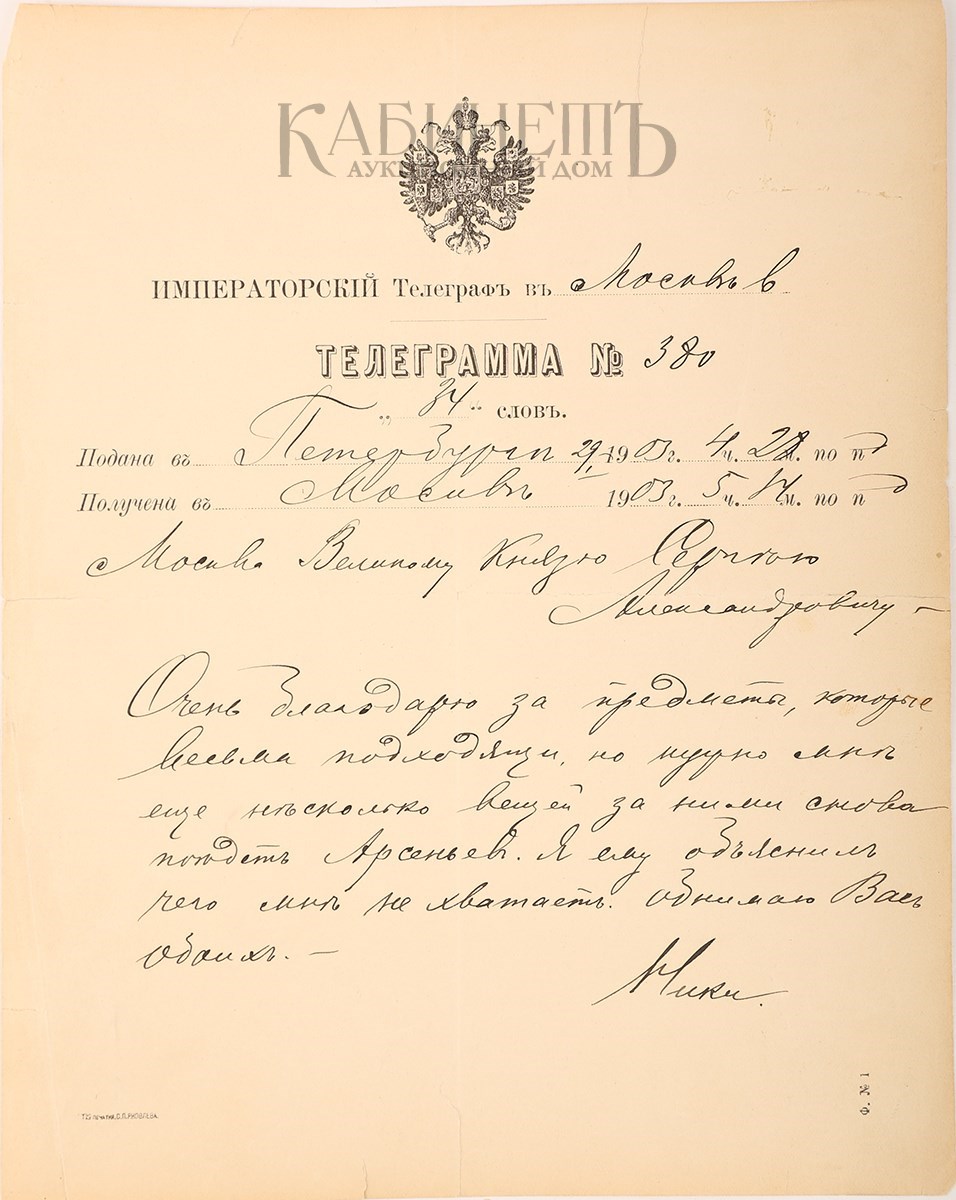 КАБИНЕТЪ
АУКЦИОННЫЙ ДОМ
ИМПЕРАТОРСКІЙ Телеграфъ въ Москвѣ
ТЕЛЕГРАММА № 380
„ 34 “ словъ.
Подана въ Петербургѣ 29/I 1903 г. 4 ч. 28 м. по п
Получена въ Москвѣ 1903 г. 5 ч. м. по п
Москва Великому Князю Сергѣю
Александровичу –
Очень благодарю за предметы, которые
весьма подходящи, но нужно мнѣ
еще нѣсколько вещей за ними снова
поѣдетъ Арсеньев. Я ему объяснилъ
чего мнѣ не хватаетъ. Обнимаю Васъ
обоихъ. –
Ники.
Ф. № 1